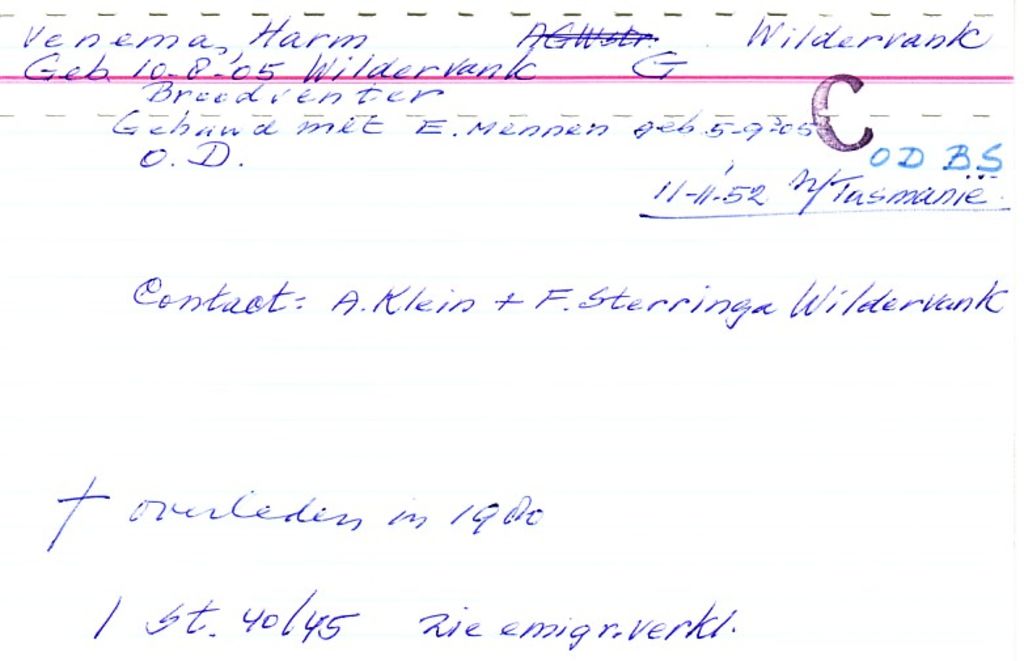 Venema, Harm AGWstr. Wildervank
Geb. 10-8-05 Wildervank G
Broodventer
Gehuwd met E. Mennen geb. 5-9-05
C
O.D.
OD BS
11-11-52 n/Tasmanië.
Contact: A. Klein + F. Sterringa Wildervank
† overleden in 1980
1 St. 40/45 zie emigr. verkl.